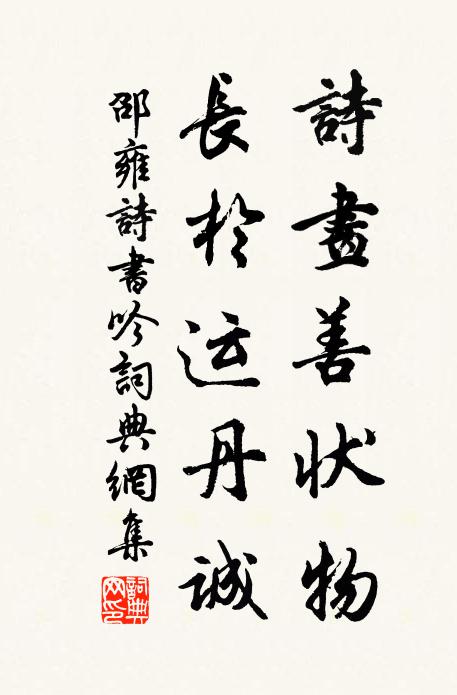 詩畫善状物
長於运丹誠
邵雍詩書吟詞典網集
詞典网印